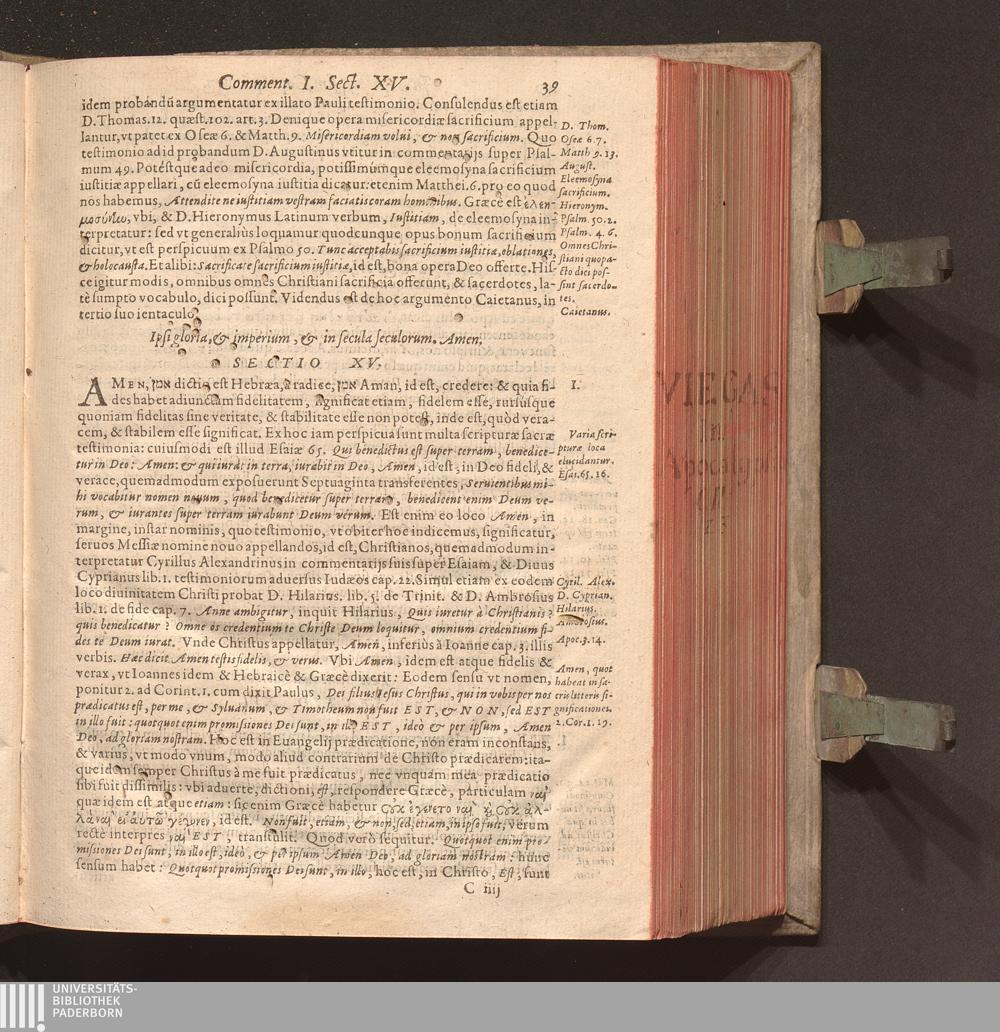 Comment. I. Sect. XV. 39
idem probandũ argumentatur ex illato Pauli testimonio. Consulendus est etiam
D. Thomas. 12. quæst. 102. art. 3. Denique opera misericordiæ sacrificium appel-
lantur, vt patet ex Oseæ 6. & Matth. 9. Misericordiam volui, & non sacrificium. Quo
testimonio ad id probandum D. Augustinus vtitur in commentarijs super Psal-
mum 49. Potestque adeo misericordia, potissimùmque eleemosyna sacrificium
iustitiæ appellari, cũ eleemosyna iustitia dicatur: etenim Matthei. 6. pro eo quod
nos habemus, Attendite ne iustitiam vestram faciatis coram hominibus. Græcè est ἐλεη-
μοσύνlω, vbi, & D. Hieronymus Latinum verbum, Iustitiam, de eleemosyna in-
terpretatur: sed vt generaliùs loquamur quodcunque opus bonum sacrificium
dicitur, vt est perspicuum ex Psalmo 50. Tunc acceptabis sacrificium iustitiæ, oblationes,
& holocausta. Et alibi: Sacrificate sacrificium iustitiæ, id est, bona opera Deo offerte. His-
ce igitur modis, omnibus omnes Christiani sacrificia offerunt, & sacerdotes, la-
tè sumpto vocabulo, dici possunt. Videndus est de hoc argumento Caietanus, in
tertio suo ientaculo.
D. Thom.
Oseæ 6. 7.
Matth 9. 13.
August.
Eleemosyna
sacrificium.
Hieronym.
Psalm. 50. 2.
Psalm. 4. 6.
Omnes Chri-
stiani quopa-
cto dici pos-
sint sacerdo-
tes.
Caietanus.
Ipsi gloria, & imperium, & in secula seculorum. Amen.
SECTIO XV.
AMEN, אמן dictio est Hebræa, à radice, אמן Aman, id est, credere: & quia fi-
des habet adiunctam fidelitatem, significat etiam, fidelem esse, rursusque
quoniam fidelitas sine veritate, & stabilitate esse non potest, inde est, quòd vera-
cem, & stabilem esse significat. Ex hoc iam perspicua sunt multa scripturæ sacræ
testimonia: cuiusmodi est illud Esaiæ 65. Qui benedictus est super terram, benedice-
tur in Deo: Amen: & qui iurat in terra, iurabit in Deo, Amen, id est, in Deo fideli, &
verace, quemadmodum exposuerunt Septuaginta transferentes, Seruientibus mi-
hi vocabitur nomen nouum, quod benedicetur super terram, benedicent enim Deum ve-
rum, & iurantes super terram iurabunt Deum verum. Est enim eo loco Amen, in
margine, instar nominis, quo testimonio, vt obiter hoc indicemus, significatur,
seruos Messiæ nomine nouo appellandos, id est, Christianos, quemadmodum in-
terpretatur Cyrillus Alexandrinus in commentarijs suis super Esaiam, & Diuus
Cyprianus lib. 1. testimoniorum aduersus Iudæos cap. 22. Simul etiam ex eodem
loco diuinitatem Christi probat D. Hilarius. lib. 5. de Trinit. & D. Ambrosius
lib. 1. de fide cap. 7. Anne ambigitur, inquit Hilarius, Quis iuretur à Christianis?
quis benedicatur? Omne os credentium te Christe Deum loquitur, omnium credentium fi-
des te Deum iurat. Vnde Christus appellatur, Amen, inferiùs à Ioanne cap. 3. illis
verbis. Hæc dicit Amen testis fidelis, & verus. Vbi Amen, idem est atque fidelis &
verax, vt Ioannes idem & Hebraicè & Græcè dixerit: Eodem sensu vt nomen,
ponitur 2. ad Corint. 1. cum dixit Paulus, Dei filius Iesus Christus, qui in vobis per nos
prædicatus est, per me, & Syluanum, & Timotheum non fuit EST, & NON, sed EST
in illo fuit: quotquot enim promissiones Dei sunt, in illo EST, ideò & per ipsum, Amen
Deo, ad gloriam nostram. Hoc est in Euangelij prædicatione, non eram inconstans,
& varius, vt modo vnum, modò aliud contrarium de Christo prædicarem: ita-
que idem semper Christus à me fuit prædicatus, nec vnquam mea prædicatio
sibi fuit dissimilis: vbi aduerte, dictioni, est, respondere Græcè, particulam ναὶ
quæ idem est atque etiam: sic enim Græcè habetur οὐκ ἐγένετο ναὶ καὶ οὐκ ἀλ-
λὰ ναὶ ἐν αὐτῷ γέγονεν, id est. Non fuit, etiam, & non, sed, etiam, in ipso fuit, verum
rectè interpres ναὶ EST, transtulit. Quod verò sequitur. Quotquot enim pro-
missiones Dei sunt, in illo est, ideo, & per ipsum Amen Deo, ad gloriam nostram: hunc
sensum habet: Quotquot promissiones Dei sunt, in illo, hoc est, in Christo, Est, sunt
C iiij
I.
Varia scri-
pturæ loca
elucidantur.
Esai. 65. 16.
Cyril. Alex.
D. Cyprian.
Hilarius.
Ambrosius.
Apoc. 3. 14.
Amen, quot
habeat in sa-
cris litteris si-
gnificationes.
2. Cor. 1. 19.
VIEGAS
in
Apocalyps
UNIVERSITÄTS-
BIBLIOTHEK
PADERBORN